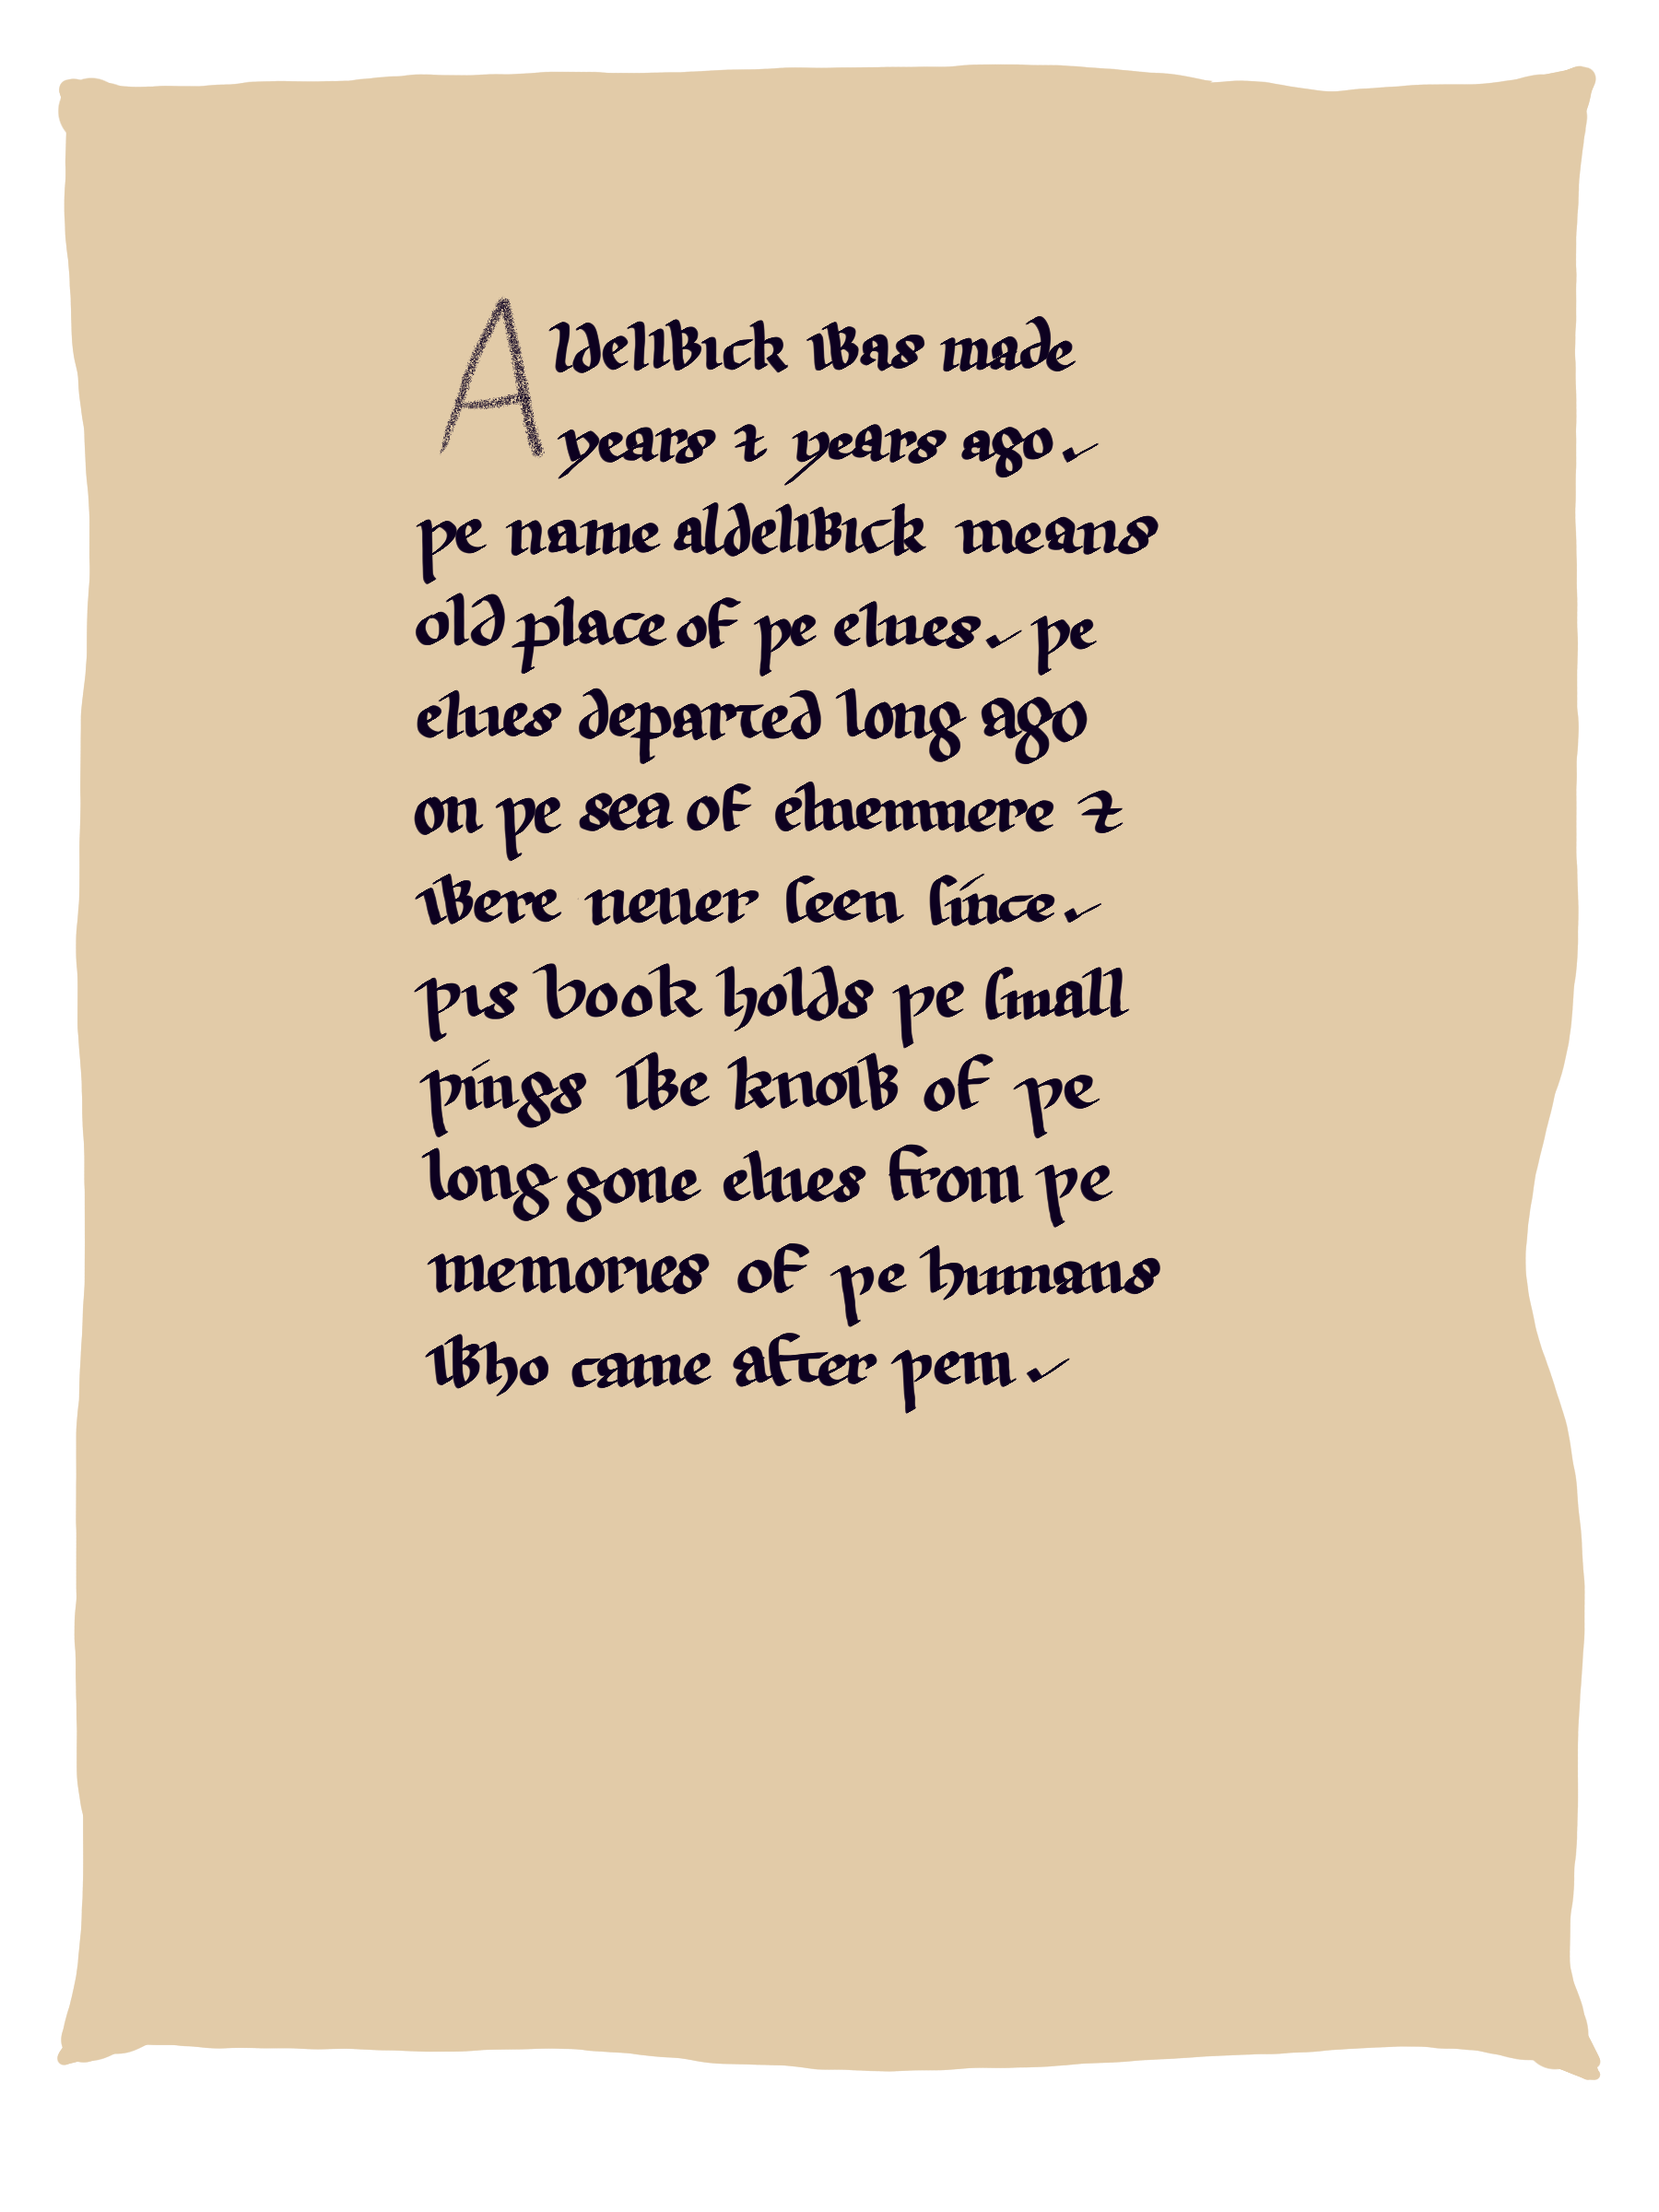 Aldelwick was made
years ⁊ years ago.
þe name aldelwick means
old place of þe elues. þe
elues departed long ago
on þe sea of eluenmere ⁊
were neuer ſeen ſince.
þis book holds þe ſmall
þings we know of þe
long gone elues from þe
memories of þe humans
who came after þem.